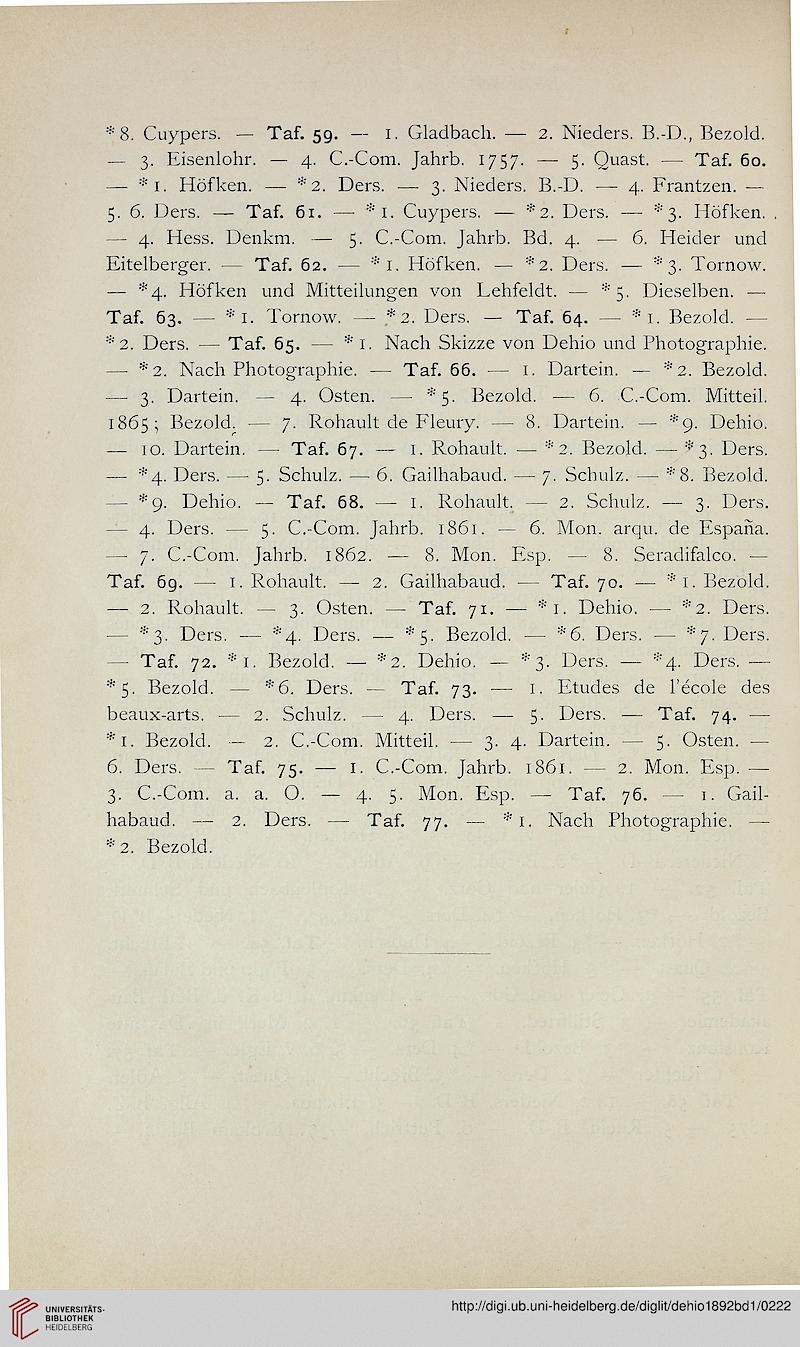 *8. Cuypers. — Taf. 59. — 1. Gladbach. — 2. Nieders. B.-D., Bezold.
— 3. Eisenlohr. — 4. C.-Com. Jahrb. 1757. — 5. Quast. — Taf. 60.
— *1. Höfken. — *2. Ders. — 3. Nieders. B.-D. — 4. Frantzen. —
5. 6. Ders. — Taf. 61. — *1. Cuypers. — *2. Ders. — *3. Höfken. .
— 4. Hess. Denkm. — 5. C.-Com. Jahrb. Bd. 4. — 6. Heider und
Eitelberger. — Taf. 62. — *1. Höfken. — *2. Ders. — *3. Tornow.
— *4. Höfken und Mitteilungen von Lehfeldt. — *5. Dieselben. —
Taf. 63. — *1. Tornow. — *2. Ders. — Taf. 64. — *1. Bezold. —
*2. Ders. — Taf. 65. — *1. Nach Skizze von Dehio und Photographie.
— *2. Nach Photographie. — Taf. 66. — 1. Dartein. — *2. Bezold.
— 3. Dartein. — 4. Osten. — *5. Bezold. — 6. C.-Com. Mitteil.
1865; Bezold. — 7. Rohault de Fleury. — 8. Dartein. — *9. Dehio.
— 10. Dartein. — Taf. 67. — 1. Rohault. — *2. Bezold. — *3. Ders.
— *4. Ders. — 5. Schulz. — 6. Gailhabaud. — 7. Schulz. — *8. Bezold.
— *9. Dehio. — Taf. 68. — 1. Rohault. — 2. Schulz. — 3. Ders.
— 4. Ders. — 5. C.-Com. Jahrb. 1861. — 6. Mon. arqu. de España.
— 7. C.-Com. Jahrb. 1862. — 8. Mon. Esp. — 8. Seradifalco. —
Taf. 69. — 1. Rohault. — 2. Gailhabaud. — Taf. 70. — *1. Bezold.
— 2. Rohault. — 3. Osten. — Taf. 71. — *1. Dehio. — *2. Ders.
— *3. Ders. — *4. Ders. — *5. Bezold. — *6. Ders. — *7. Ders.
— Taf. 72. *1. Bezold. — *2. Dehio. — *3. Ders. — *4. Ders. —
*5. Bezold. — *6. Ders. — Taf. 73. — 1. Etudes de l'école des
beaux-arts. — 2. Schulz. — 4. Ders. — 5. Ders. — Taf. 74. —
*1. Bezold. — 2. C.-Com. Mitteil. — 3. 4. Dartein. — 5. Osten. —
6. Ders. — Taf. 75. — 1. C.-Com. Jahrb. 1861. — 2. Mon. Esp. —
3. C.-Com. a. a. O. — 4. 5. Mon. Esp. — Taf. 76. — 1. Gail-
habaud. — 2. Ders. — Taf. 77. — *1. Nach Photographie. —
*2. Bezold.
UNIVERSITÄTS-
BIBLIOTHEK
HEIDELBERG
http://digi.ub.uni-heidelberg.de/diglit/dehio1892bd1/0222